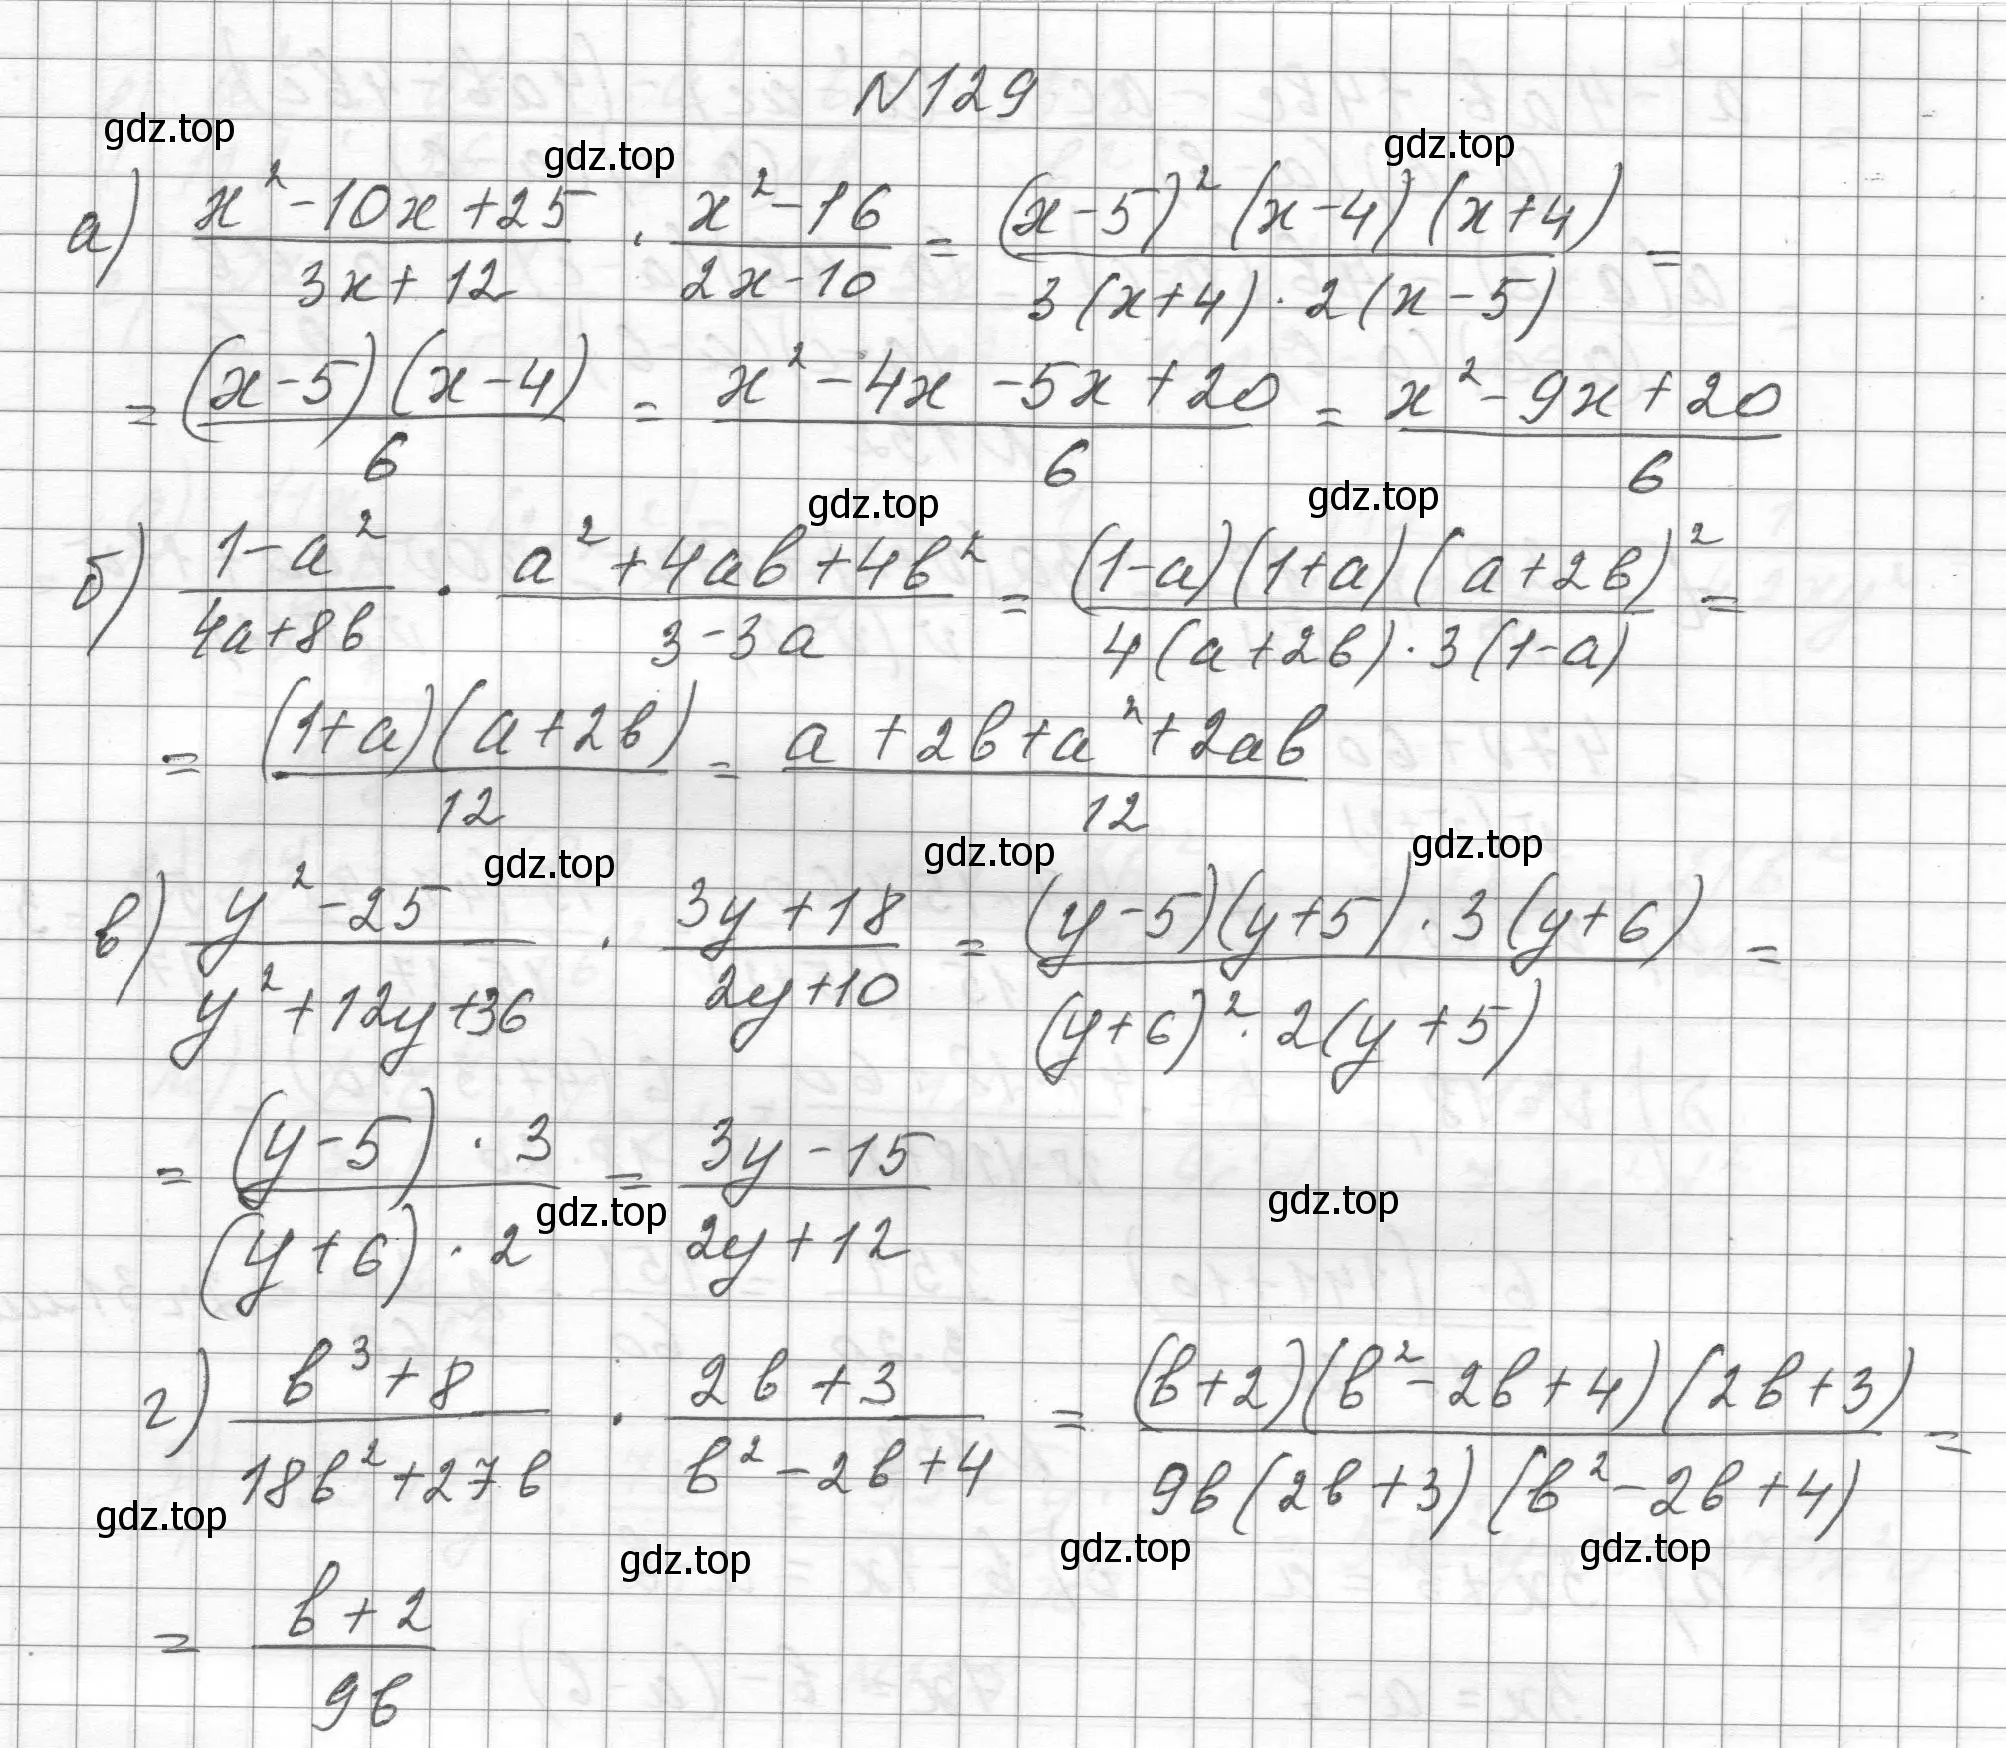 N129
gdz.top gdz.top gdz.top
а) (x²-10x+25)/(3x+12) · (x²-16)/(2x-10) = ((x-5)²(x-4)(x+4))/(3(x+4)·2(x-5)) =
= ((x-5)(x-4))/6 = (x²-4x-5x+20)/6 = (x²-9x+20)/6
gdz.top gdz.top
б) (1-a²)/(4a+8b) · (a²+4ab+4b²)/(3-3a) = ((1-a)(1+a)(a+2b)²)/(4(a+2b)·3(1-a)) =
= ((1+a)(a+2b))/12 = (a+2b+a²+2ab)/12
gdz.top gdz.top gdz.top
в) (y²-25)/(y²+12y+36) · (3y+18)/(2y+10) = ((y-5)(y+5)·3(y+6))/((y+6)²·2(y+5)) =
= ((y-5)·3)/((y+6)·2) = (3y-15)/(2y+12)
gdz.top gdz.top
г) (b³+8)/(18b²+27b) · (2b+3)/(b²-2b+4) = ((b+2)(b²-2b+4)(2b+3))/(9b(2b+3)(b²-2b+4)) =
gdz.top gdz.top gdz.top gdz.top
= (b+2)/9b